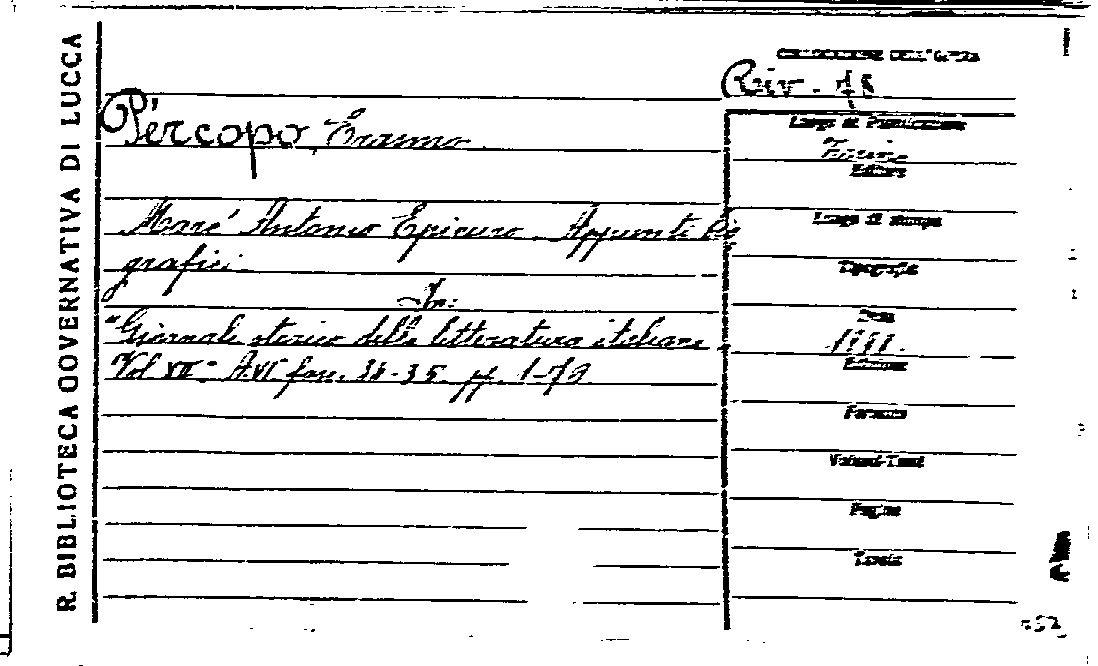 R. BIBLIOTECA GOVERNATIVA DI LUCCA
Pèrcopo Erasmo
Marc' Antonio Epicuro. Appunti bio
grafici.
In:
"Giornale storico della letteratura italiana
Vol. XII - A. VI fasc. 34-35. pp. 1-79
COLLOCAZIONE DELL'OPERA
Riv.
Luogo di Pubblicazione
Torino
Editore
Luogo di stampa
Tipografia
Data
1888.
Edizione
Formato
Volumi-Tomi
Pagine
Tavole